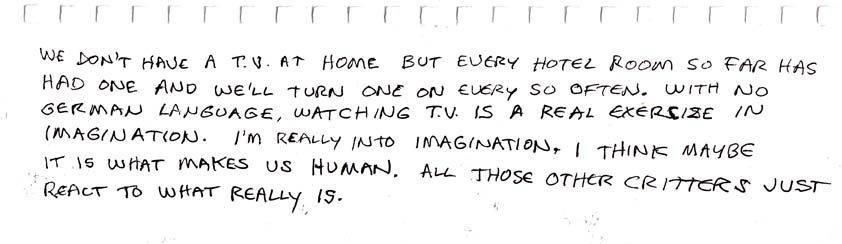 WE DON'T HAVE A T.V. AT HOME BUT EVERY HOTEL ROOM SO FAR HAS
HAD ONE AND WE'LL TURN ONE ON EVERY SO OFTEN. WITH NO
GERMAN LANGUAGE, WATCHING T.V. IS A REAL EXERSIZE IN
IMAGINATION. I'M REALLY INTO IMAGINATION, I THINK MAYBE
IT IS WHAT MAKES US HUMAN. ALL THOSE OTHER CRITTERS JUST
REACT TO WHAT REALLY IS.